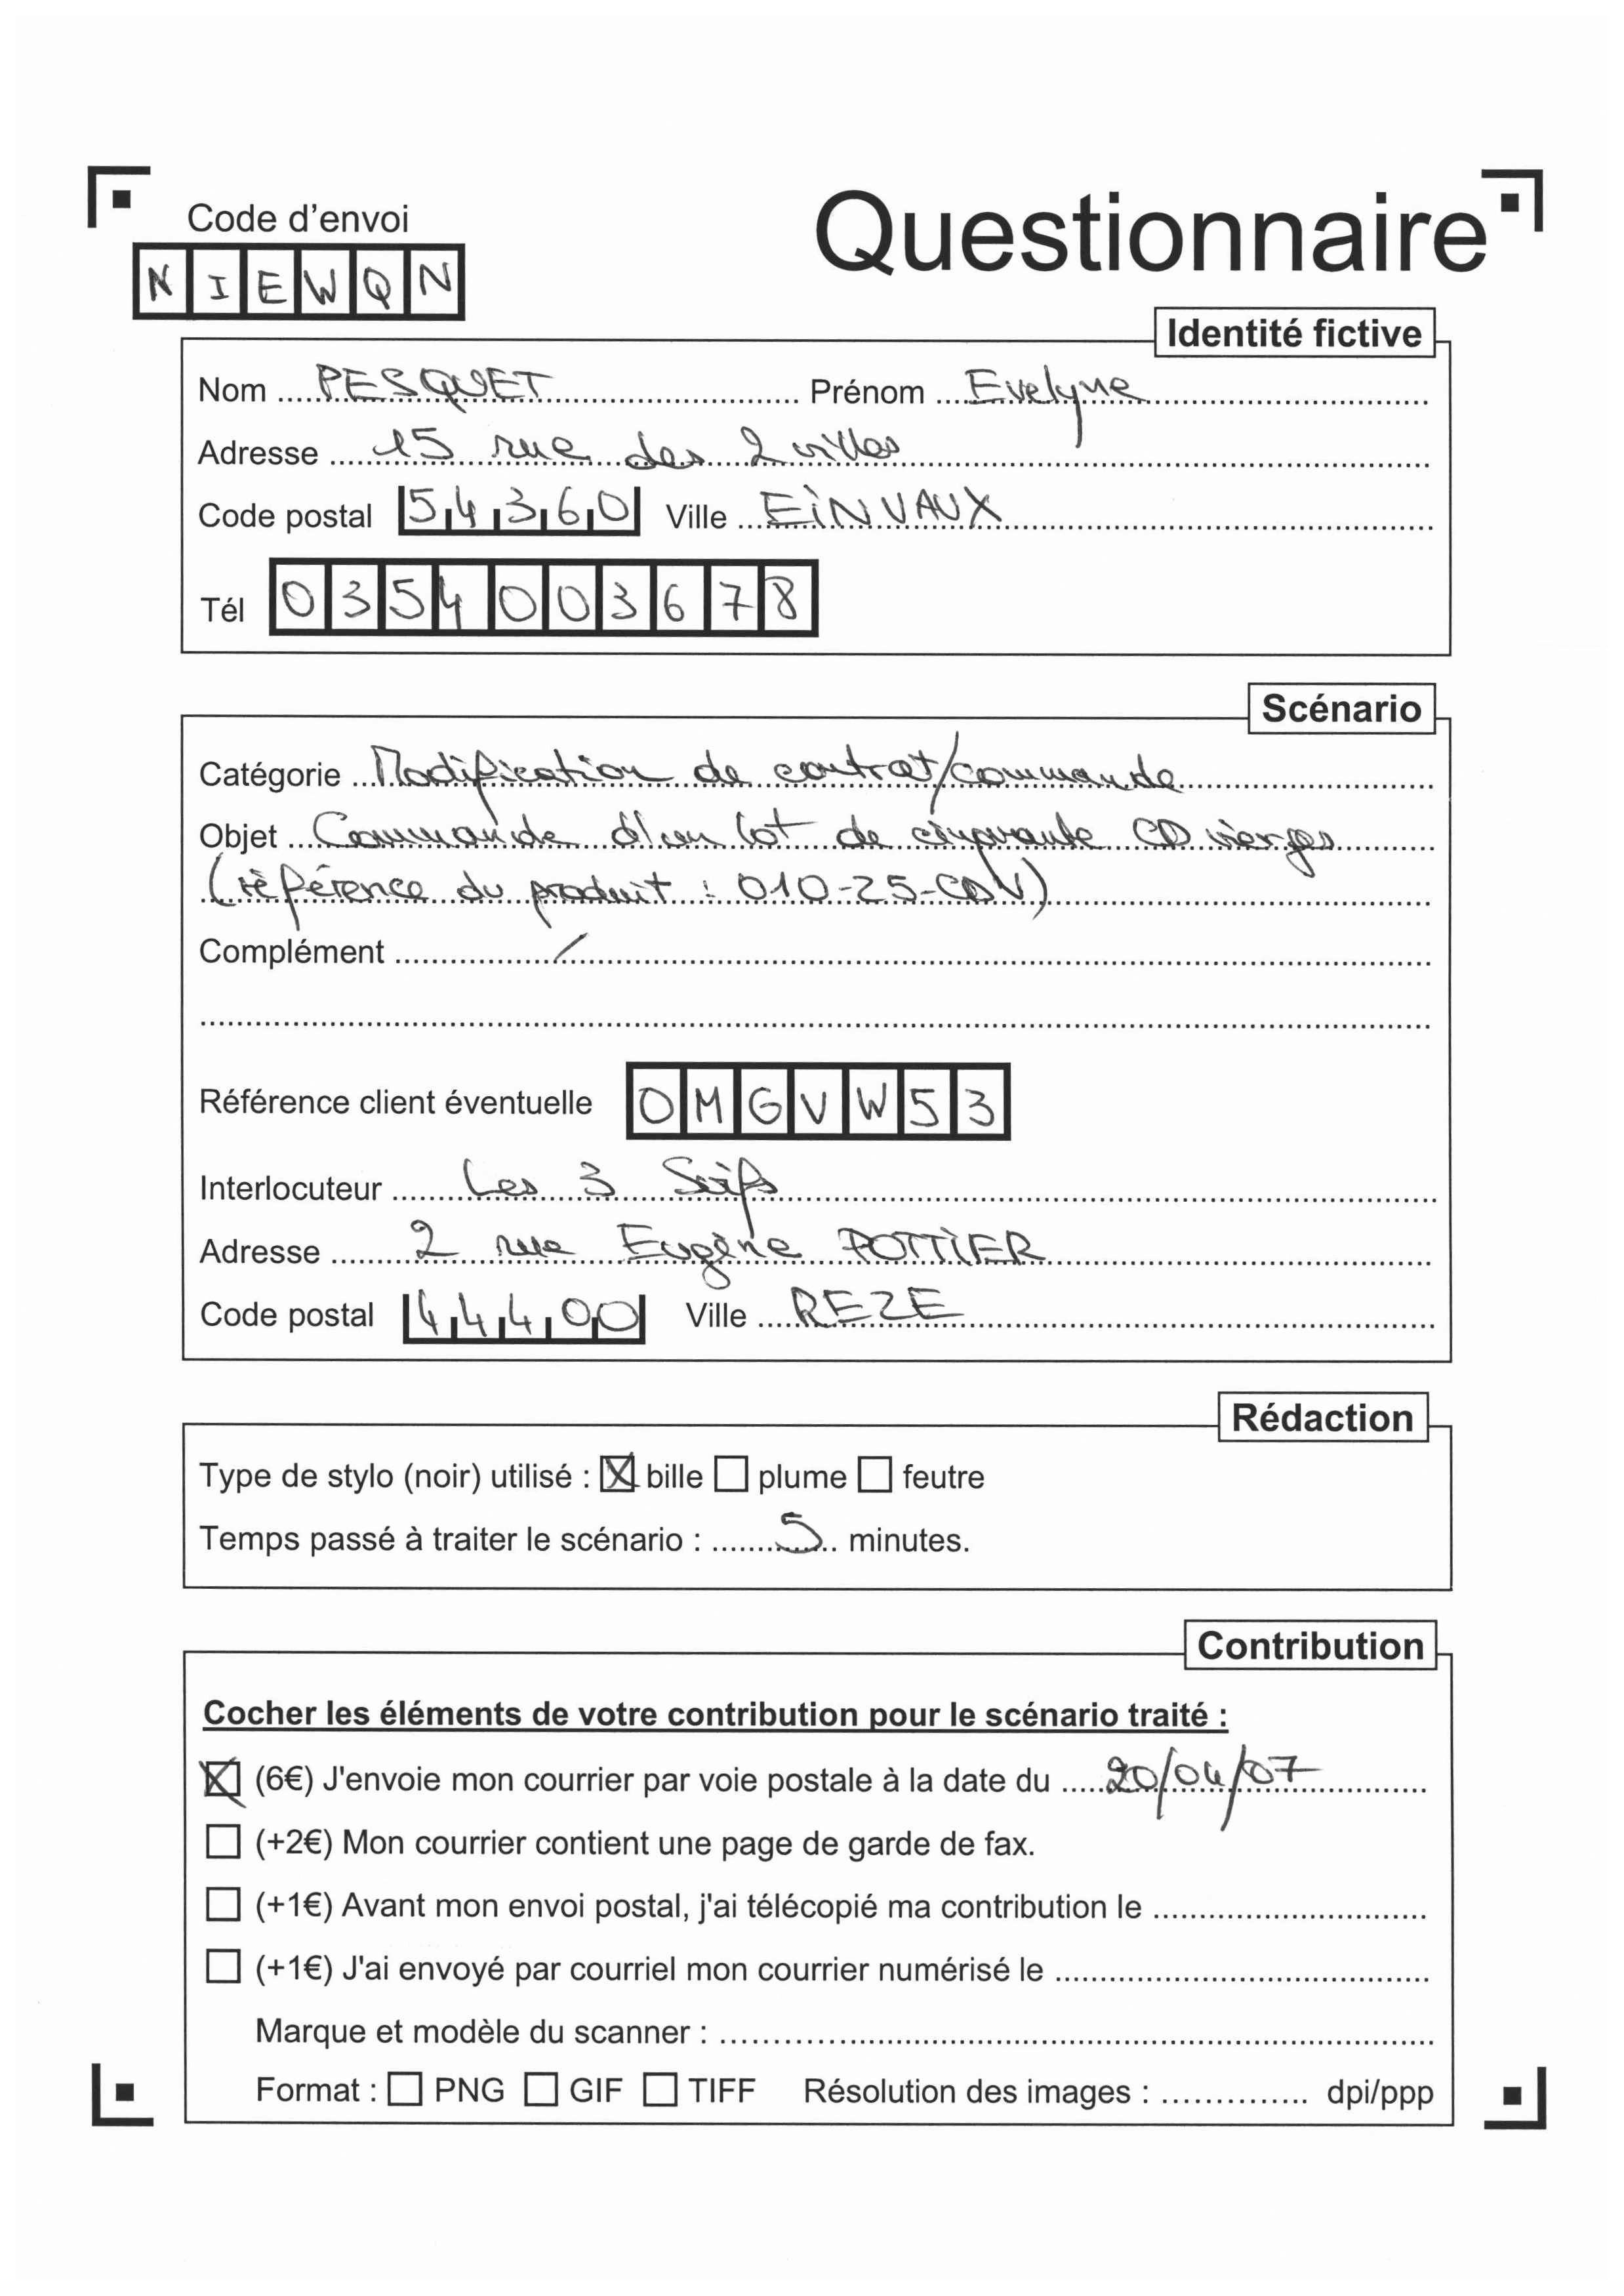 Code d'envoi
Questionnaire
NIEWQN
Identité fictive
Nom PESQUET Prénom Evelyne
Adresse 15 rue des 2 villes
Code postal 54360 Ville EINVAUX
Tél 0354003678
Scénario
Catégorie Modification de contrat/commande
Objet Commande d'un lot de cinquante CD vierges
(référence du produit : 010-25-CDV)
Complément /
Référence client éventuelle OMGVW53
Interlocuteur Les 3 Suifs
Adresse 2 rue Eugène POTTIER
Code postal 44400 Ville REZE
Rédaction
Type de stylo (noir) utilisé : ☒ bille ☐ plume ☐ feutre
Temps passé à traiter le scénario : 5 minutes.
Contribution
Cocher les éléments de votre contribution pour le scénario traité :
☒ (6€) J'envoie mon courrier par voie postale à la date du 20/04/07
☐ (+2€) Mon courrier contient une page de garde de fax.
☐ (+1€) Avant mon envoi postal, j'ai télécopié ma contribution le
☐ (+1€) J'ai envoyé par courriel mon courrier numérisé le
Marque et modèle du scanner :
Format : ☐ PNG ☐ GIF ☐ TIFF Résolution des images : dpi/ppp